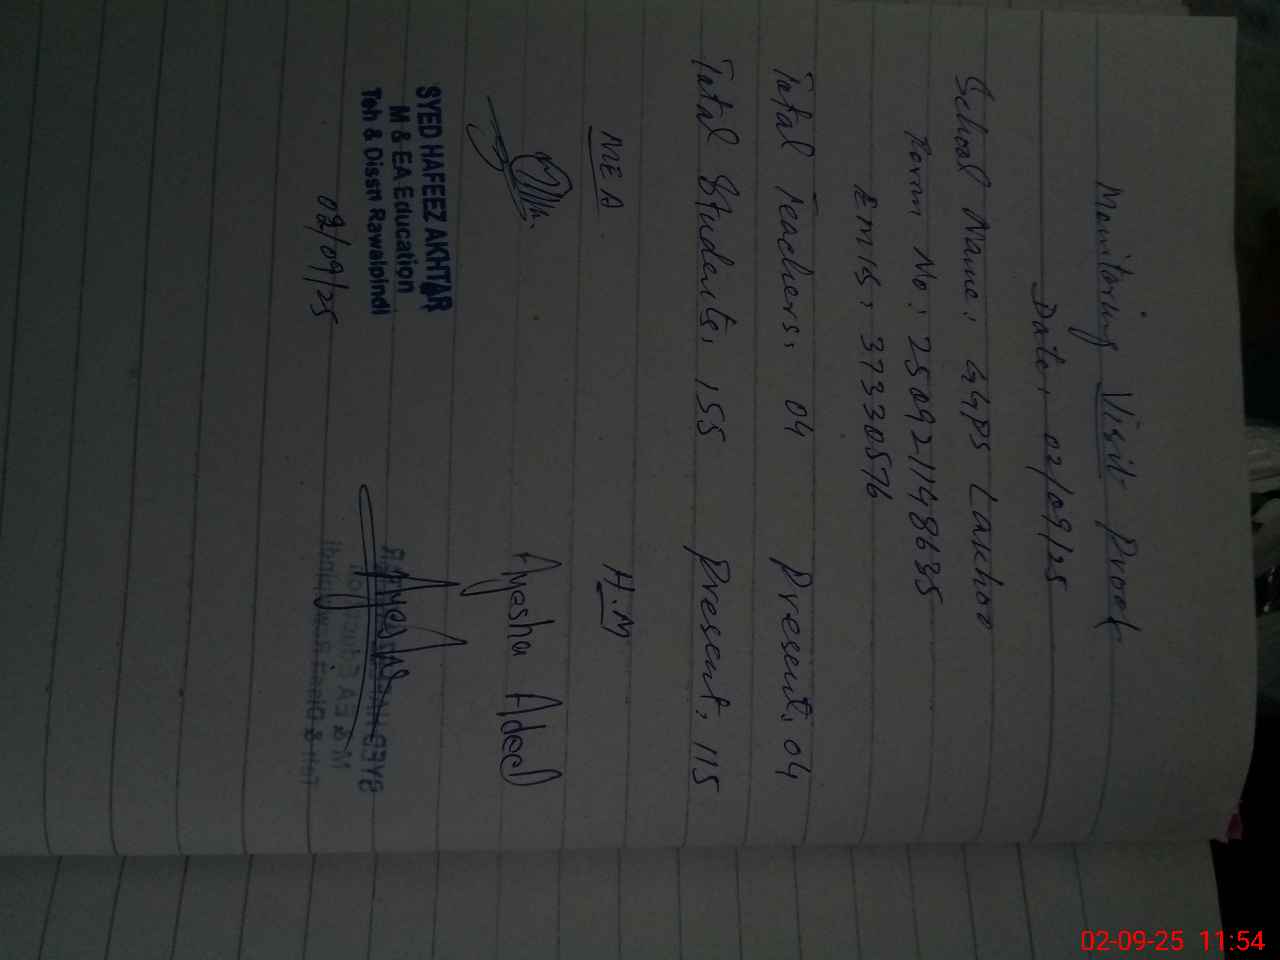 Monitoring Visit Proof
Date: 02/09/25
School Name: GGPS Lakhoo
Form No: 250921148635
EMIS: 37330576
Total Teachers: 04 Present: 04
Total Students: 155 Present: 115
MEA H.M
Ayesha Adeel
SYED HAFEEZ AKHTAR
M & EA Education
Teh & Dissn Rawalpindi
Ayesha
02/09/25
02-09-25 11:54